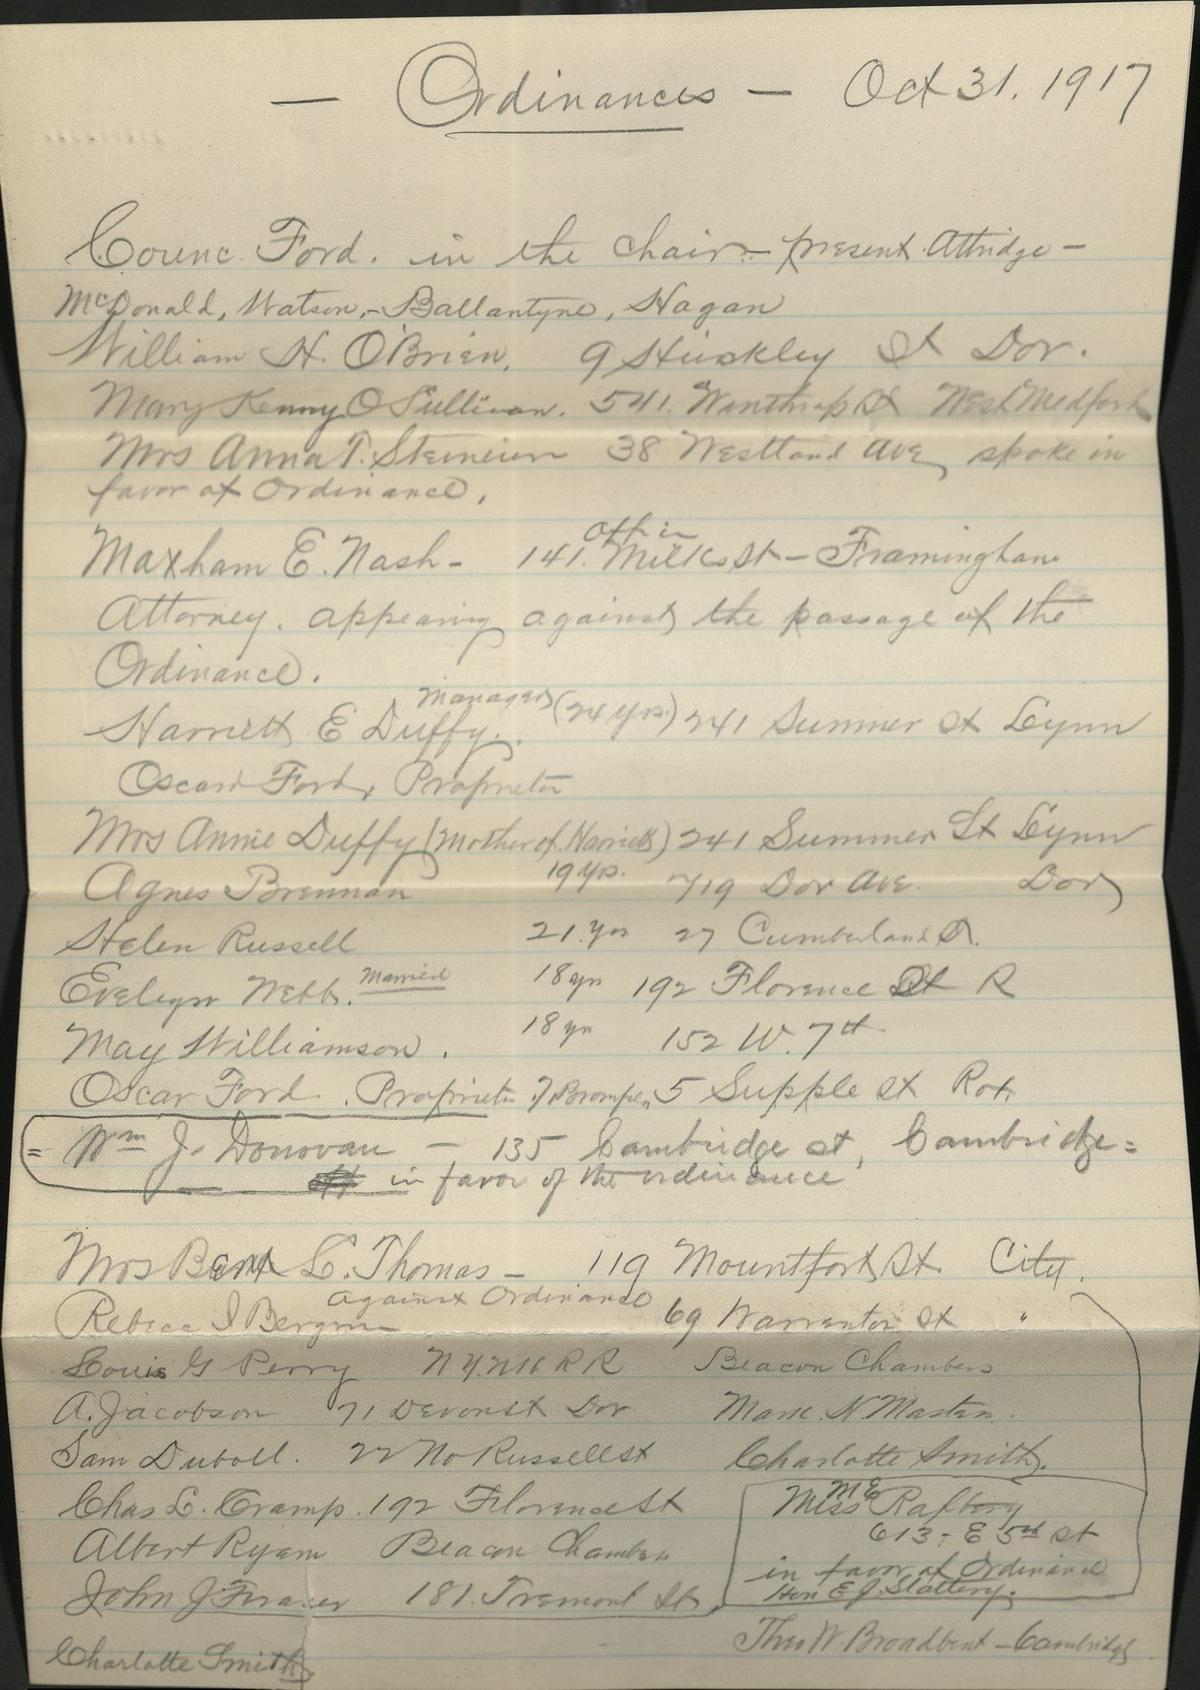 — Ordinances — Oct 31. 1917
Counc. Ford. in the chair — present Attridge —
McDonald, Watson, - Ballantyne, Hagan
William H. O'Brien. 9 Hinckley St Dor.
Mary Kenny O Sullivan. 541. Winthrop St West Medford
Mrs Anna T. 38 Westland Ave, spoke in
favor of Ordinance.
Office
Maxham E. Nash - 141. Milk St - Framingham
Attorney. appearing against the passage of the
Ordinance.
Manager (24 yrs.)
Harriett E Duffy. 241 Summer St Lynn
Oscar Ford, Proprietor
Mrs Annie Duffy (Mother of Harriett) 241 Summer St Lynn
Agnes Brennan 19 yrs. 719 Dor Ave. Dor
Helen Russell 21. yrs 27 Cumberland St.
Evelyn Webb. Married 18 yrs 192 Florence St R
May Williamson. 18 yr 152 W. 7th
Oscar Ford. Proprietor 5 Supple St Rox.
= Wm J. Donovan — 135 Cambridge st, Cambridge =
in favor of the ordinance
Mrs L. Thomas - 119 Mountfort St. City.
against Ordinance
Rebeca I Bergman 69 Warrenton St "
Louis G Perry N Y. N H R R Beacon Chambers
A. Jacobson 71 Devon St Dor
Mark N Masten.
Sam 22 No Russell St
Charlotte Smith.
Chas L. Cramp. 192 Florence St
Miss M E Raftery
613 - E 5th st
Albert Ryan Beacon Chambers
in favor of Ordinance
Hon E J. Slattery.
John J Fraser 181. Tremont St,
Theo W. Broadbent - Cambridge
Charlotte Smith